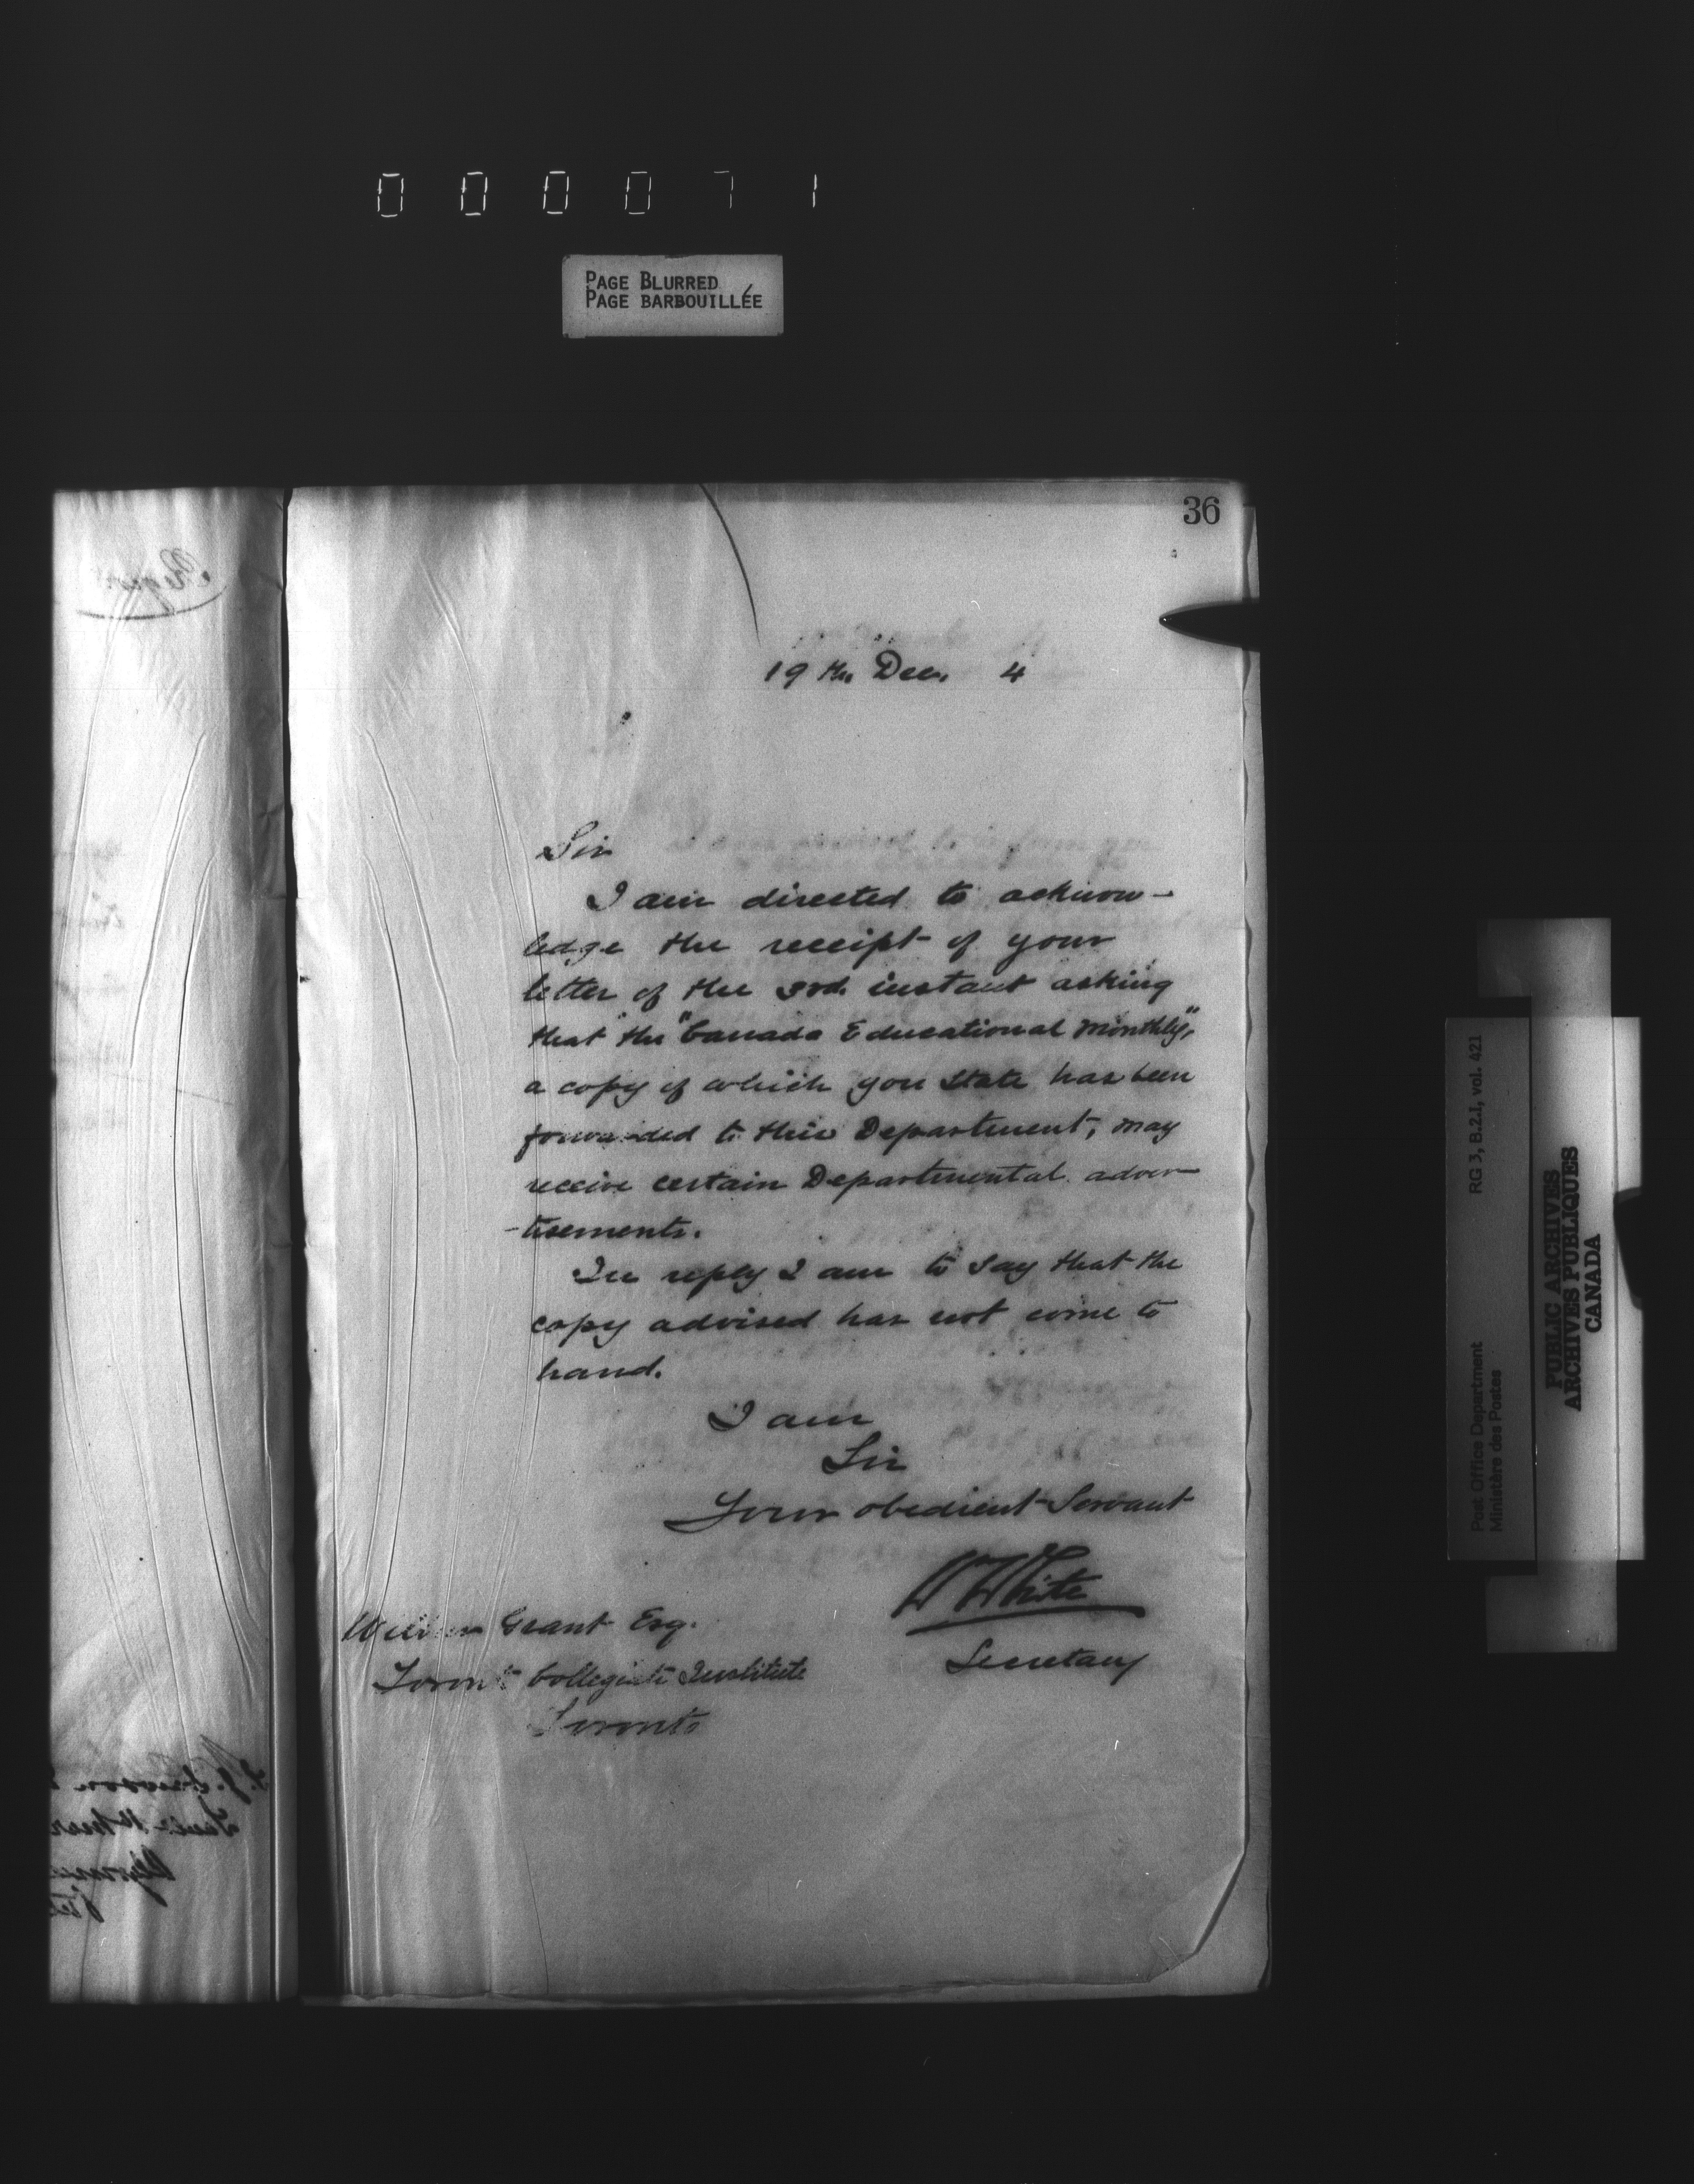 000071
PAGE BLURRED
PAGE BARBOUILLÉE
36
19th. Dec. 4
Sir
I am directed to acknow-
ledge the receipt of your
letter of the 3rd. instant asking
that "the "Canada Educational Monthly",
a copy of which you state has been
forwarded to this Department, may
receive certain Departmental adver-
-tisements.
In reply I am to say that the
copy advised has not come to
hand.
I am
Sir
Your obedient Servant
W White
Secretary
William Grant Esq.
Toronto Collegiate Institute
Toronto
RG 3, B.2.I, vol. 421
Post Office Department
Ministère des Postes
PUBLIC ARCHIVES
ARCHIVES PUBLIQUES
CANADA